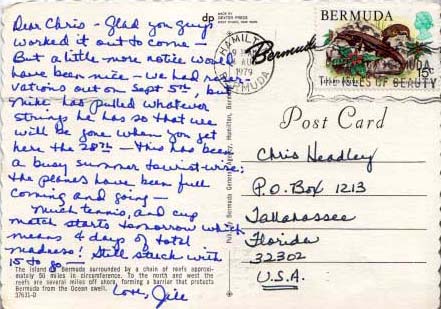 Dear Chris - Glad you guys
worked it out to come -
But a little more notice would
have been nice - we had reser-
vations out on Sept 5th, but
Mike has pulled whatever
strings he has so that we
will be gone when you get
here the 28th - this has been
a busy summer tourist-wise;
the planes have been full
coming and going -
Much tennis, and cup
match starts tomorrow which
means 4 days of total
madness! Still stuck with
15 to go -
Love, Jill
The island of Bermuda surrounded by a chain of reefs approxi-
mately 50 miles in circumference. To the north and west the
reefs are several miles off shore, forming a barrier that protects
Bermuda from the Ocean swell.
37631-D
dp
MADE BY
DEXTER PRESS
WEST NYACK, NEW YORK
Pub. by Bermuda General Agency, Hamilton, Bermuda
HAMILTON
AU
1979
BERMUDA
Bermuda
THE ISLES OF BEAUTY
BERMUDA
15c
Post Card
Chris Headley
P.O. Box 1213
Tallahassee
Florida
32302
U.S.A.